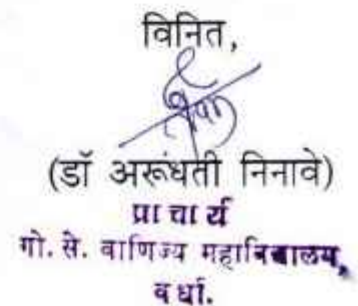 विनित,
(डॉ अरूंधती निनावे)
प्राचार्य
गो. से. वाणिज्य महाविद्यालय,
वर्धा.